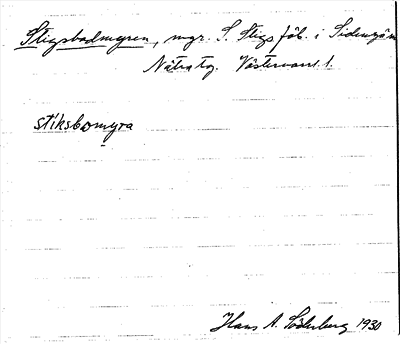 Stigsbodmyren, mgr. S. Stigs fäb. i Sidensjö
Nätra tg. Västernorrl.
stiksbomyra
Hans A. Söderberg 1930